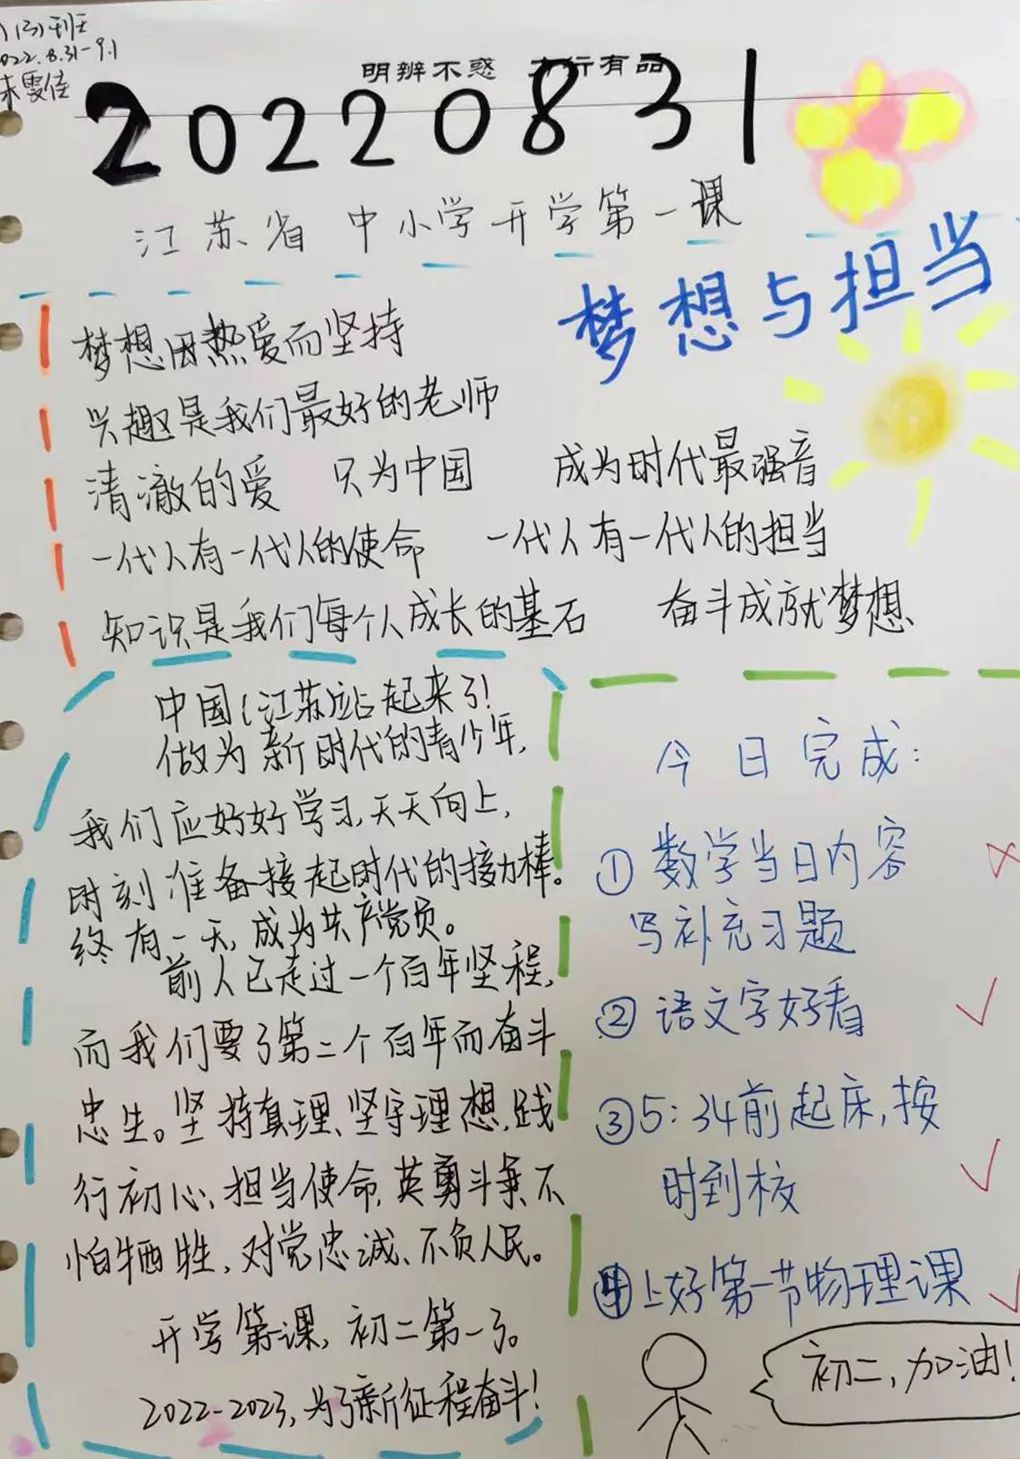 (3)班
2022.8.31-9.1
雯佳
明辨不惑 力行有品
20220831
江苏省 中小学开学第一课
梦想与担当
梦想因热爱而坚持
兴趣是我们最好的老师
清澈的爱 只为中国 成为时代最强音
一代人有一代人的使命 一代人有一代人的担当
知识是我们每个人成长的基石 奋斗成就梦想
中国(江苏)站起来了!
做为新时代的青少年,
我们应好好学习,天天向上,
时刻准备接起时代的接力棒。
终有一天,成为共产党员。
前人已走过一个百年坚程,
而我们要了第二个百年而奋斗
忠生。坚持真理、坚守理想,践
行初心、担当使命,英勇斗争,不
怕牺牲,对党忠诚、不负人民。
开学第一课,初二第一了。
2022-2023,为了新征程奋斗!
今日完成:
①数学当日内容
写补充习题
②语文字好看
③5:34前起床,按
时到校
④上好第一节物理课
初二,加油!